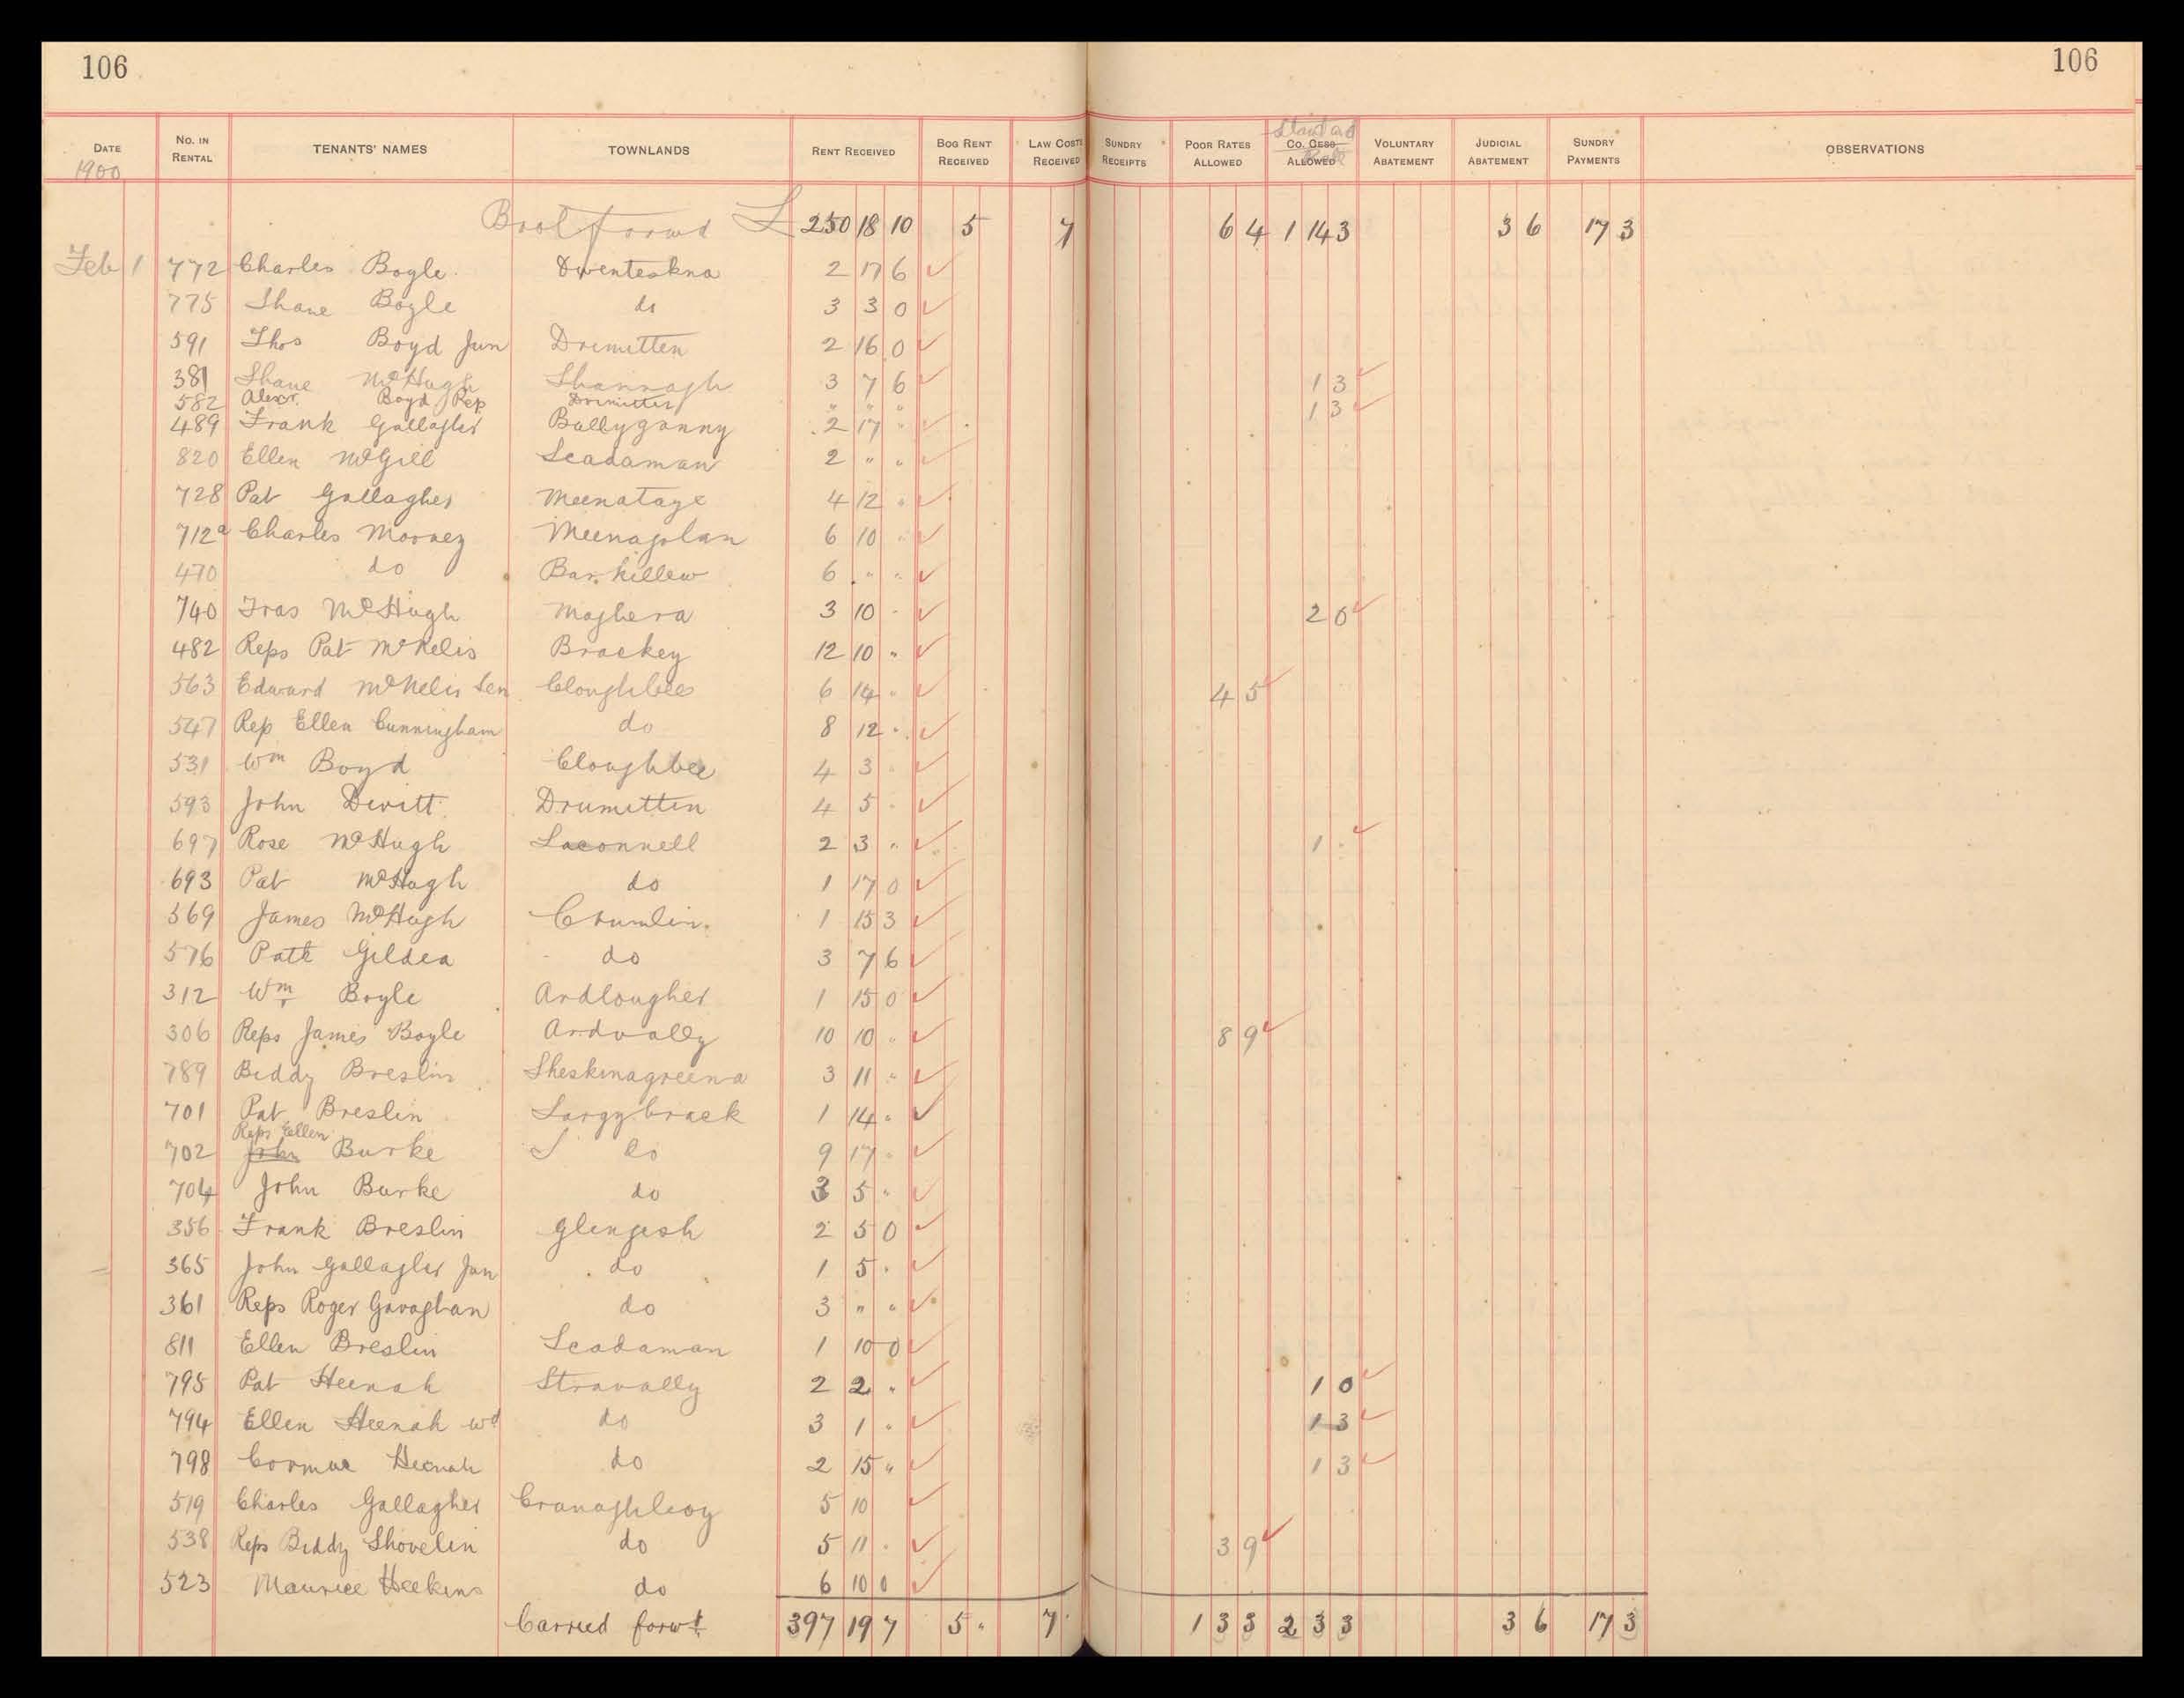 106 106
DATE 1900 NO. IN RENTAL TENANTS' NAMES TOWNLANDS RENT RECEIVED BOG RENT RECEIVED LAW COSTS RECEIVED SUNDRY RECEIPTS POOR RATES ALLOWED CO. CESS ALLOWED VOLUNTARY ABATEMENT JUDICIAL ABATEMENT SUNDRY PAYMENTS OBSERVATIONS
Brot forwd £ 250 18 10 5 7 6 4 1 14 3 3 6 17 3
Feb 1 772 Charles Boyle 2 17 6
775 Shane Boyle do 3 3 0
591 Thos Boyd Jun Drimitten 2 16 0
381 Shane McHugh Shannagh 3 7 6 1 3
582 Alexr. Boyd Rep Drimitten " " " 1 3
489 Frank Gallagher Ballyganny 2 17 "
820 Ellen McGill Scadaman 2 " "
728 Pat Gallagher Meenatage 4 12 "
712a Charles Mooney Meenagolan 6 10 "
470 do Bar. killew 6 " "
740 Fras McHugh Maghera 3 10 - 2 0
482 Reps Pat McNelis Brackey 12 10 "
563 Edward McNelis Sen Cloughbee 6 14 " 4 5
547 Rep Ellen Cunningham do 8 12 "
531 Wm Boyd Cloughbee 4 3 "
593 John Devitt Drumitten 4 5 "
697 Rose McHugh Laconnell 2 3 " 1 "
693 Pat McHugh do 1 17 0
369 James McHugh Crumlin. 1 15 3
576 Patk Gildea do 3 7 6
312 Wm Boyle Ardlougher 1 15 0
306 Reps James Boyle Ardvally 10 10 " 8 9
789 Biddy Breslin Sheskinagreena 3 11 "
701 Pat Breslin Largybrack 1 14 "
Reps Ellen
702 John Burke do 9 17 "
704 John Burke do 3 5 "
356 Frank Breslin Glengesh 2 5 0
365 John Gallagher Jun do 1 5 "
361 Reps Roger Gavaghan do 3 " "
811 Ellen Breslin Scadaman 1 10 0
795 Pat Heenah Stravally 2 2 " 1 0
794 Ellen Heenah wd do 3 1 " 1 3
798 Cormac Heenah do 2 15 " 1 3
519 Charles Gallagher Cranaghleoy 5 10
538 Reps Biddy Shovelin do 5 11 " 3 9
523 Maurice Heekins do 6 10 0
Carried forwd 397 19 7 5 " 7 1 3 3 2 3 3 3 6 17 3